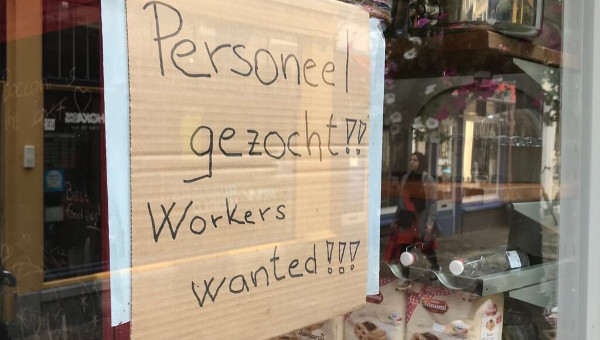 Personeel
gezocht!!
Workers
wanted!!!
Best